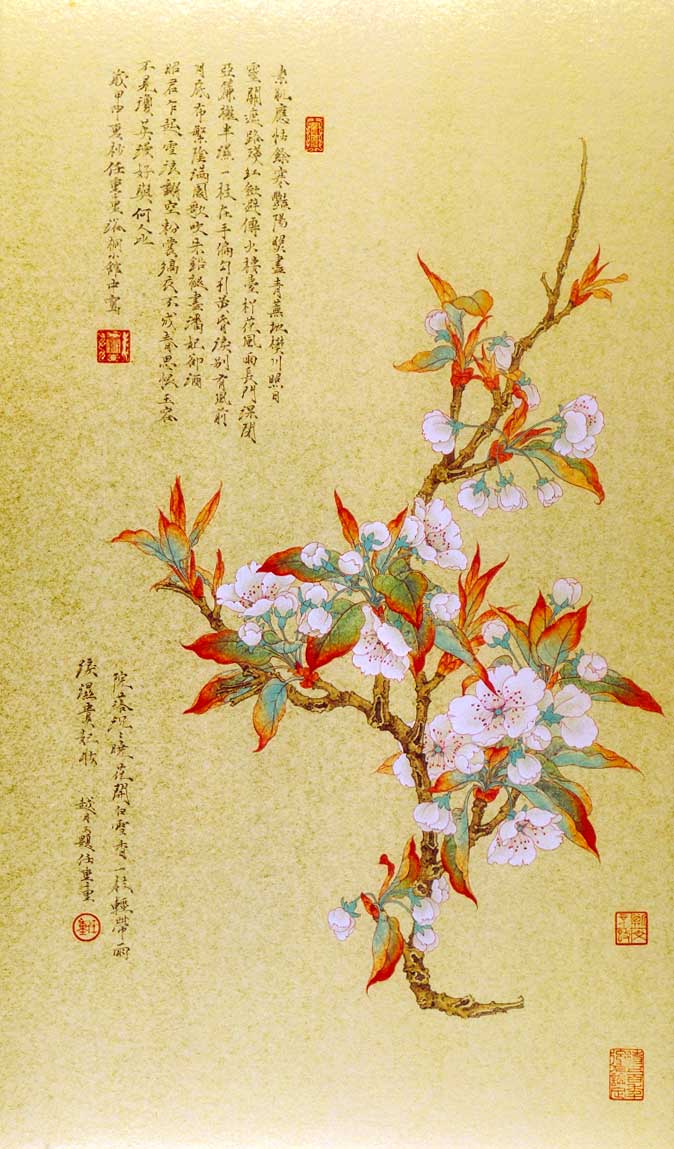 素肌應怯餘寒豔陽占盡青蕪地樊川照日
靈關遮路殘紅斂避傳火樓臺妒花風雨長門深閉
亞簾櫳半濕一枝在手偏勾引黃昏淚別有風前
月底布繁陰滿園歌吹朱鉛褪盡潘妃卻酒
昭君乍起雪浪翻空粉裳縞夜不成春思恨玉容
不見瓊英漫好與何人比
歲甲申夏杪任重重 桐館中寫
院落沉沉曉花開白雪香一枝輕帶雨
淚濕貴妃妝 越月又題任重重